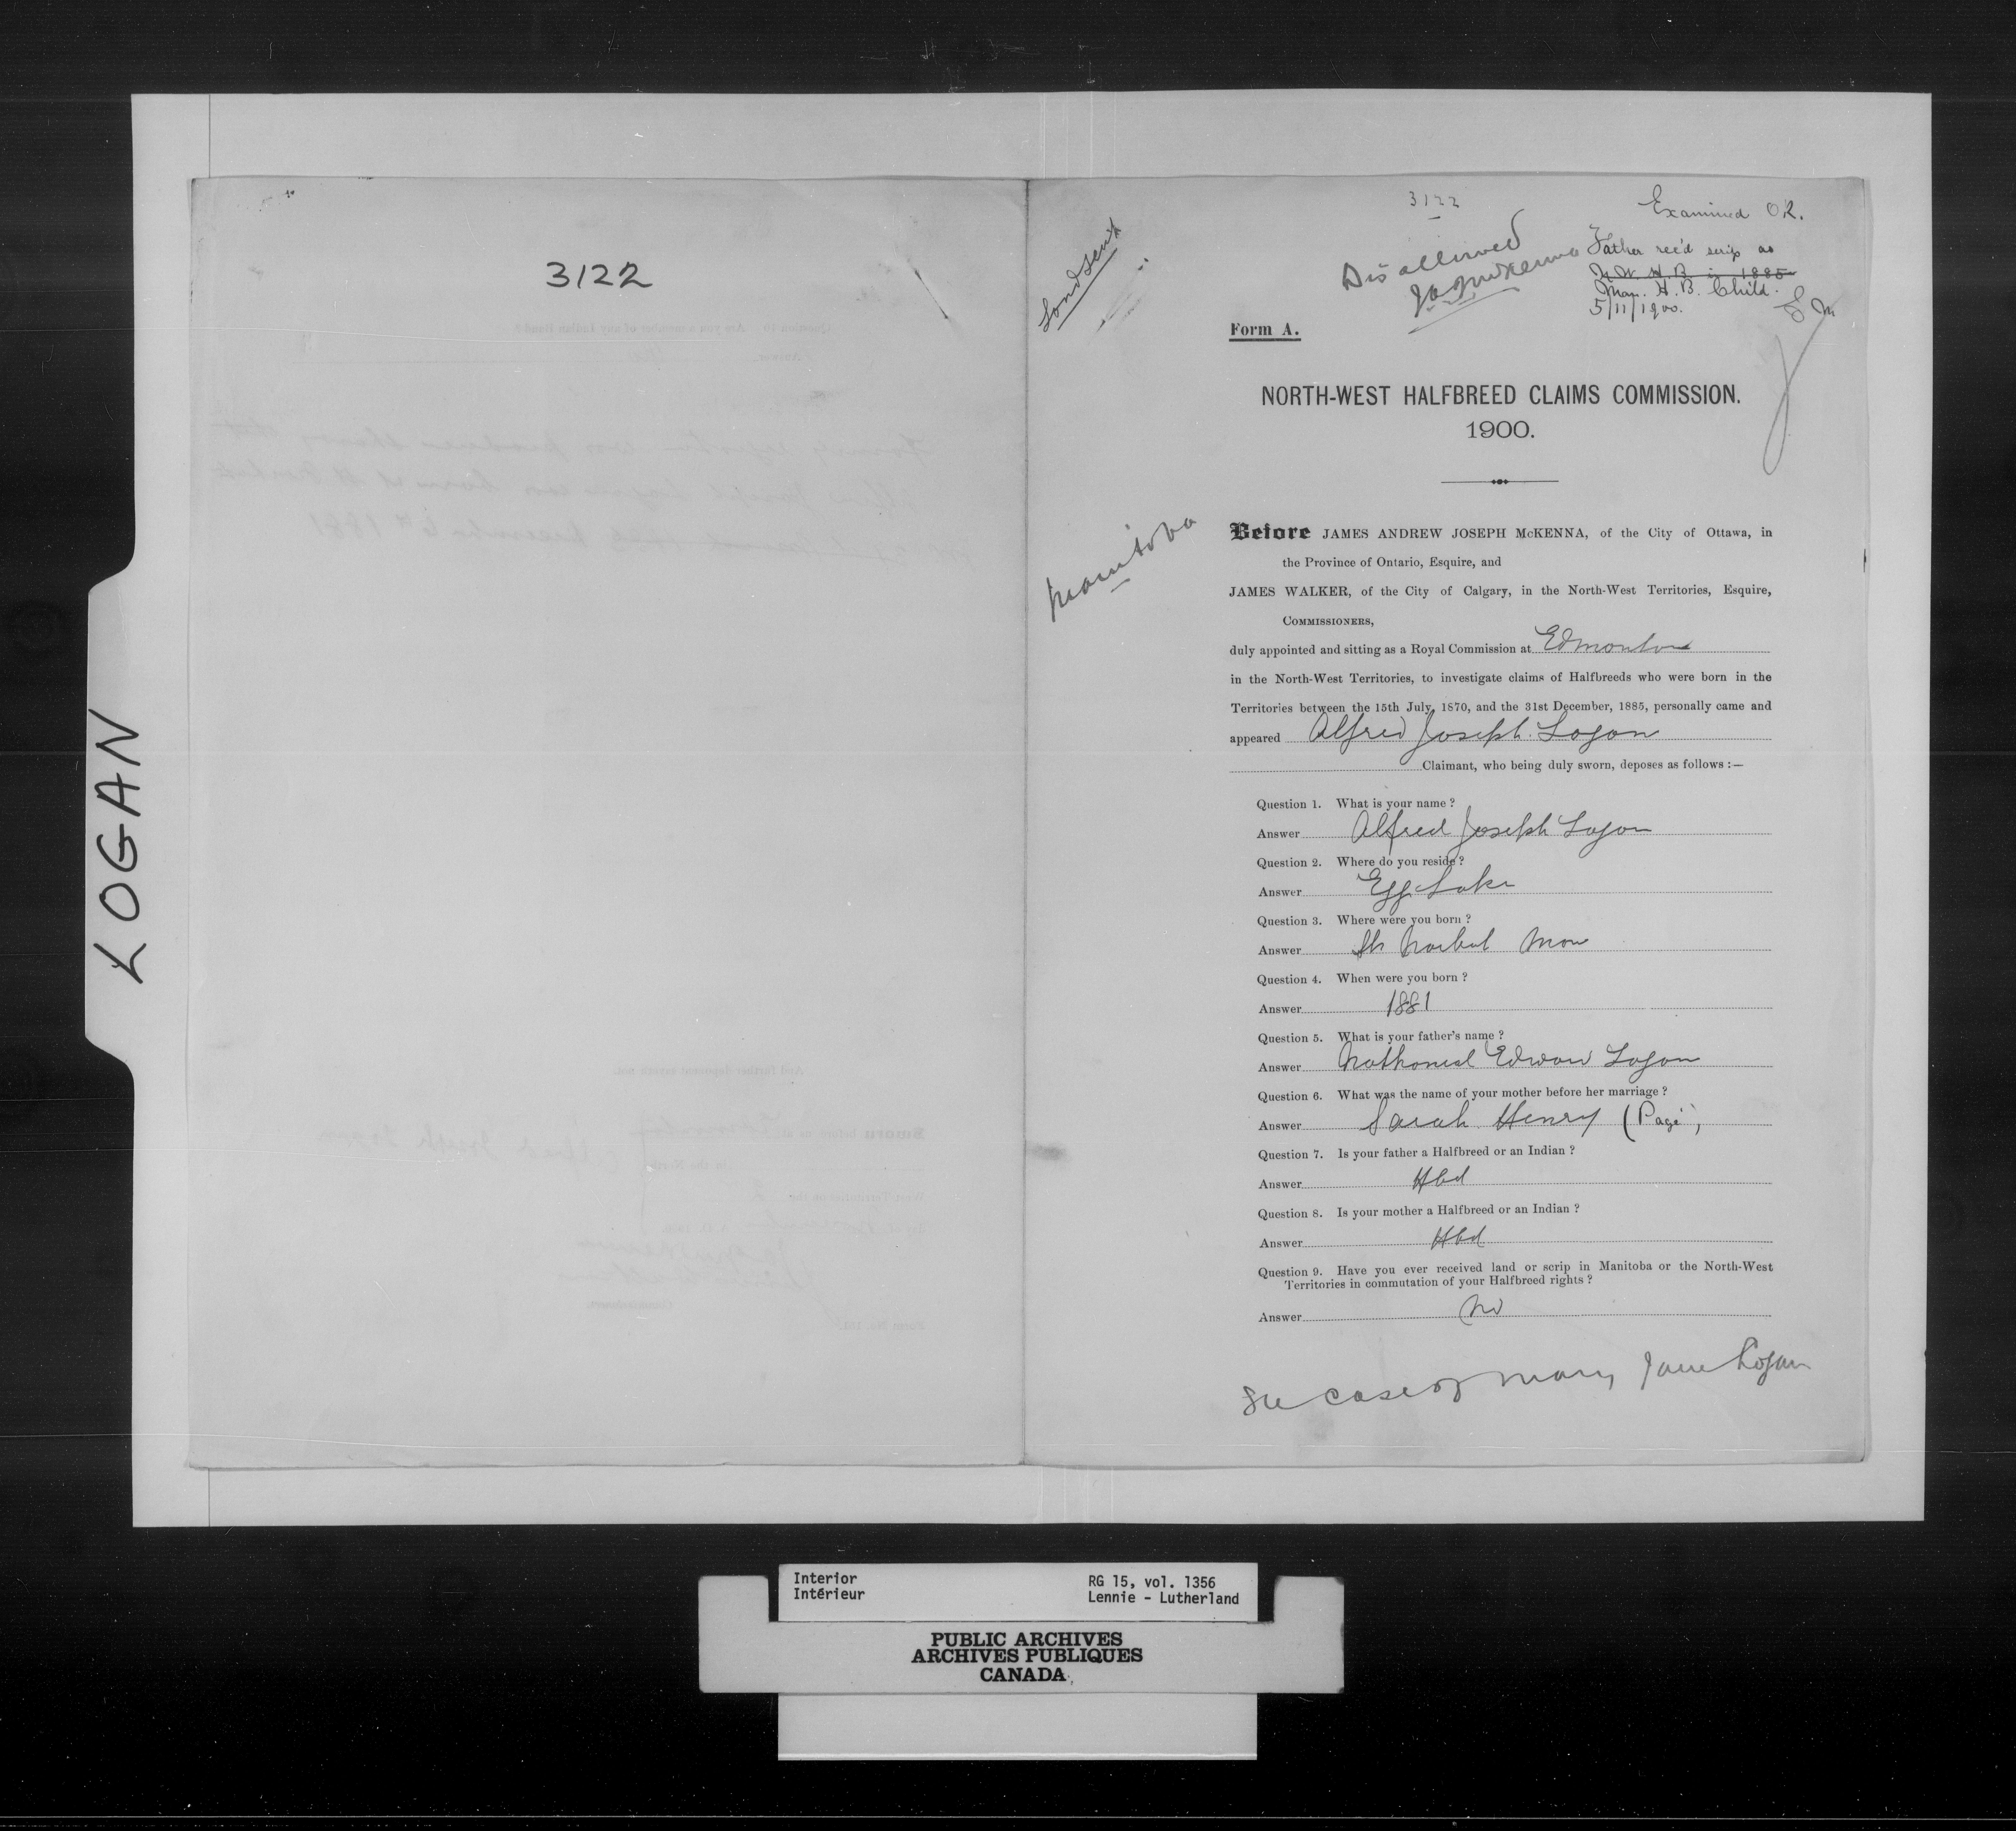 3122
LOGAN
3122
Examined O.K.
Disallowed
JAJMcKenna
Father rec'd scrip as
N.W. H.B. in 1885
Man. H.B. Child.
5/11/1900.
Form A.
NORTH-WEST HALFBREED CLAIMS COMMISSION.
1900.
Manitoba
Before JAMES ANDREW JOSEPH McKENNA, of the City of Ottawa, in
the Province of Ontario, Esquire, and
JAMES WALKER, of the City of Calgary, in the North-West Territories, Esquire,
COMMISSIONERS,
duly appointed and sitting as a Royal Commission at Edmonton
in the North-West Territories, to investigate claims of Halfbreeds who were born in the
Territories between the 15th July, 1870, and the 31st December, 1885, personally came and
appeared Alfred Joseph Logan
Claimant, who being duly sworn, deposes as follows :—
Question 1. What is your name ?
Answer Alfred Joseph Logan
Question 2. Where do you reside ?
Answer Egg Lake
Question 3. Where were you born ?
Answer St Norbert Man
Question 4. When were you born ?
Answer 1881
Question 5. What is your father's name ?
Answer Nathanial Edward Logan
Question 6. What was the name of your mother before her marriage ?
Answer Sarah Henry (Pagé)
Question 7. Is your father a Halfbreed or an Indian ?
Answer Hbd
Question 8. Is your mother a Halfbreed or an Indian ?
Answer Hbd
Question 9. Have you ever received land or scrip in Manitoba or the North-West
Territories in commutation of your Halfbreed rights ?
Answer No
See case of Mary Jane Logan
Interior
Intérieur
RG 15, vol. 1356
Lennie - Lutherland
PUBLIC ARCHIVES
ARCHIVES PUBLIQUES
CANADA